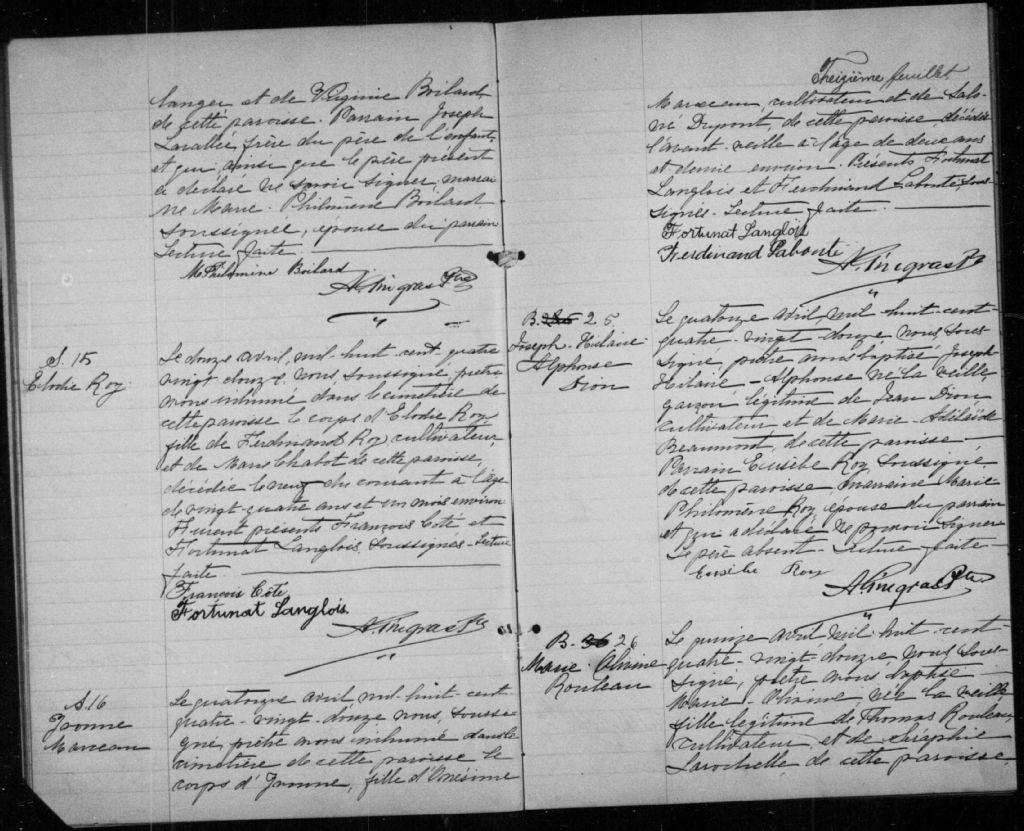 langer et de Virginie Boilard
de cette paroisse. Parrain Joseph
Lavallée, frère du père de l'enfant,
et qui ainsi que le père présent
a déclaré ne savoir signer, marrai
ne Marie-Philomène Boilard
soussignée, épouse du parrain
Lecture faite
M. Philomine Boilard
A. Gingras Ptre
S. 15
Elodie Roy
Le douze avril, mil-huit-cent-quatre
vingt-douze, nous, soussigné, prêtre
avons inhumé dans le cimetière de
cette paroisse le corps d'Elodie Roy
fille de Ferdinand Roy, cultivateur
et de Marie Chabot de cette paroisse,
décédée le neuf du courant à l'âge
de vingt-quatre ans et un mois environ
Furent présents François Coté et
Fortunat Langlois soussignés. Lecture
faite
François Côté
Fortunat Langlois
A. Gingras Ptre
S. 16
Yvonne
Marceau
Le quatorze avril, mil-huit-cent-
quatre-vingt-douze nous, soussi
gné, prêtre avons inhumé dans le
cimetière de cette paroisse le
corps d'Yvonne, fille d'Onésime
Treizième feuillet
Marceau, cultivateur et de Salo-
mé Dupont, de cette paroisse décédée
l'avant-veille à l'âge de deux ans
et demie environ. Présents Fortunat
Langlois et Ferdinand Labonté, sous-
signés. Lecture faite.
Fortunat Langlois
Ferdinand Labonté
A. Gingras Ptre
B. 25
Joseph-Hilaire-
Alphonse
Dion
Le quatorze avril, mil-huit-cent-
quatre-vingt-douze nous, sous
signé, prêtre avons baptisé Joseph-
Hilaire-Alphonse né la veille,
garçon légitime de Jean Dion
cultivateur et de Marie-Adélaïde
Beaumont, de cette paroisse
Parrain Eusèbe Roy soussigné
de cette paroisse, marraine Marie
Philomène Roy, épouse du parrain
et qui a déclaré ne pouvoir signer
Le père absent. Lecture faite
Eusèbe Roy
A. Gingras Ptre
B. 26
Marie Olivine
Rouleau
Le quinze avril mil-huit-cent
quatre-vingt-douze nous sous-
signé, prêtre avons baptisé
Marie-Olivine, née la veille
fille légitime de Thomas Rouleau
cultivateur et de Séraphie
Larochelle, de cette paroisse